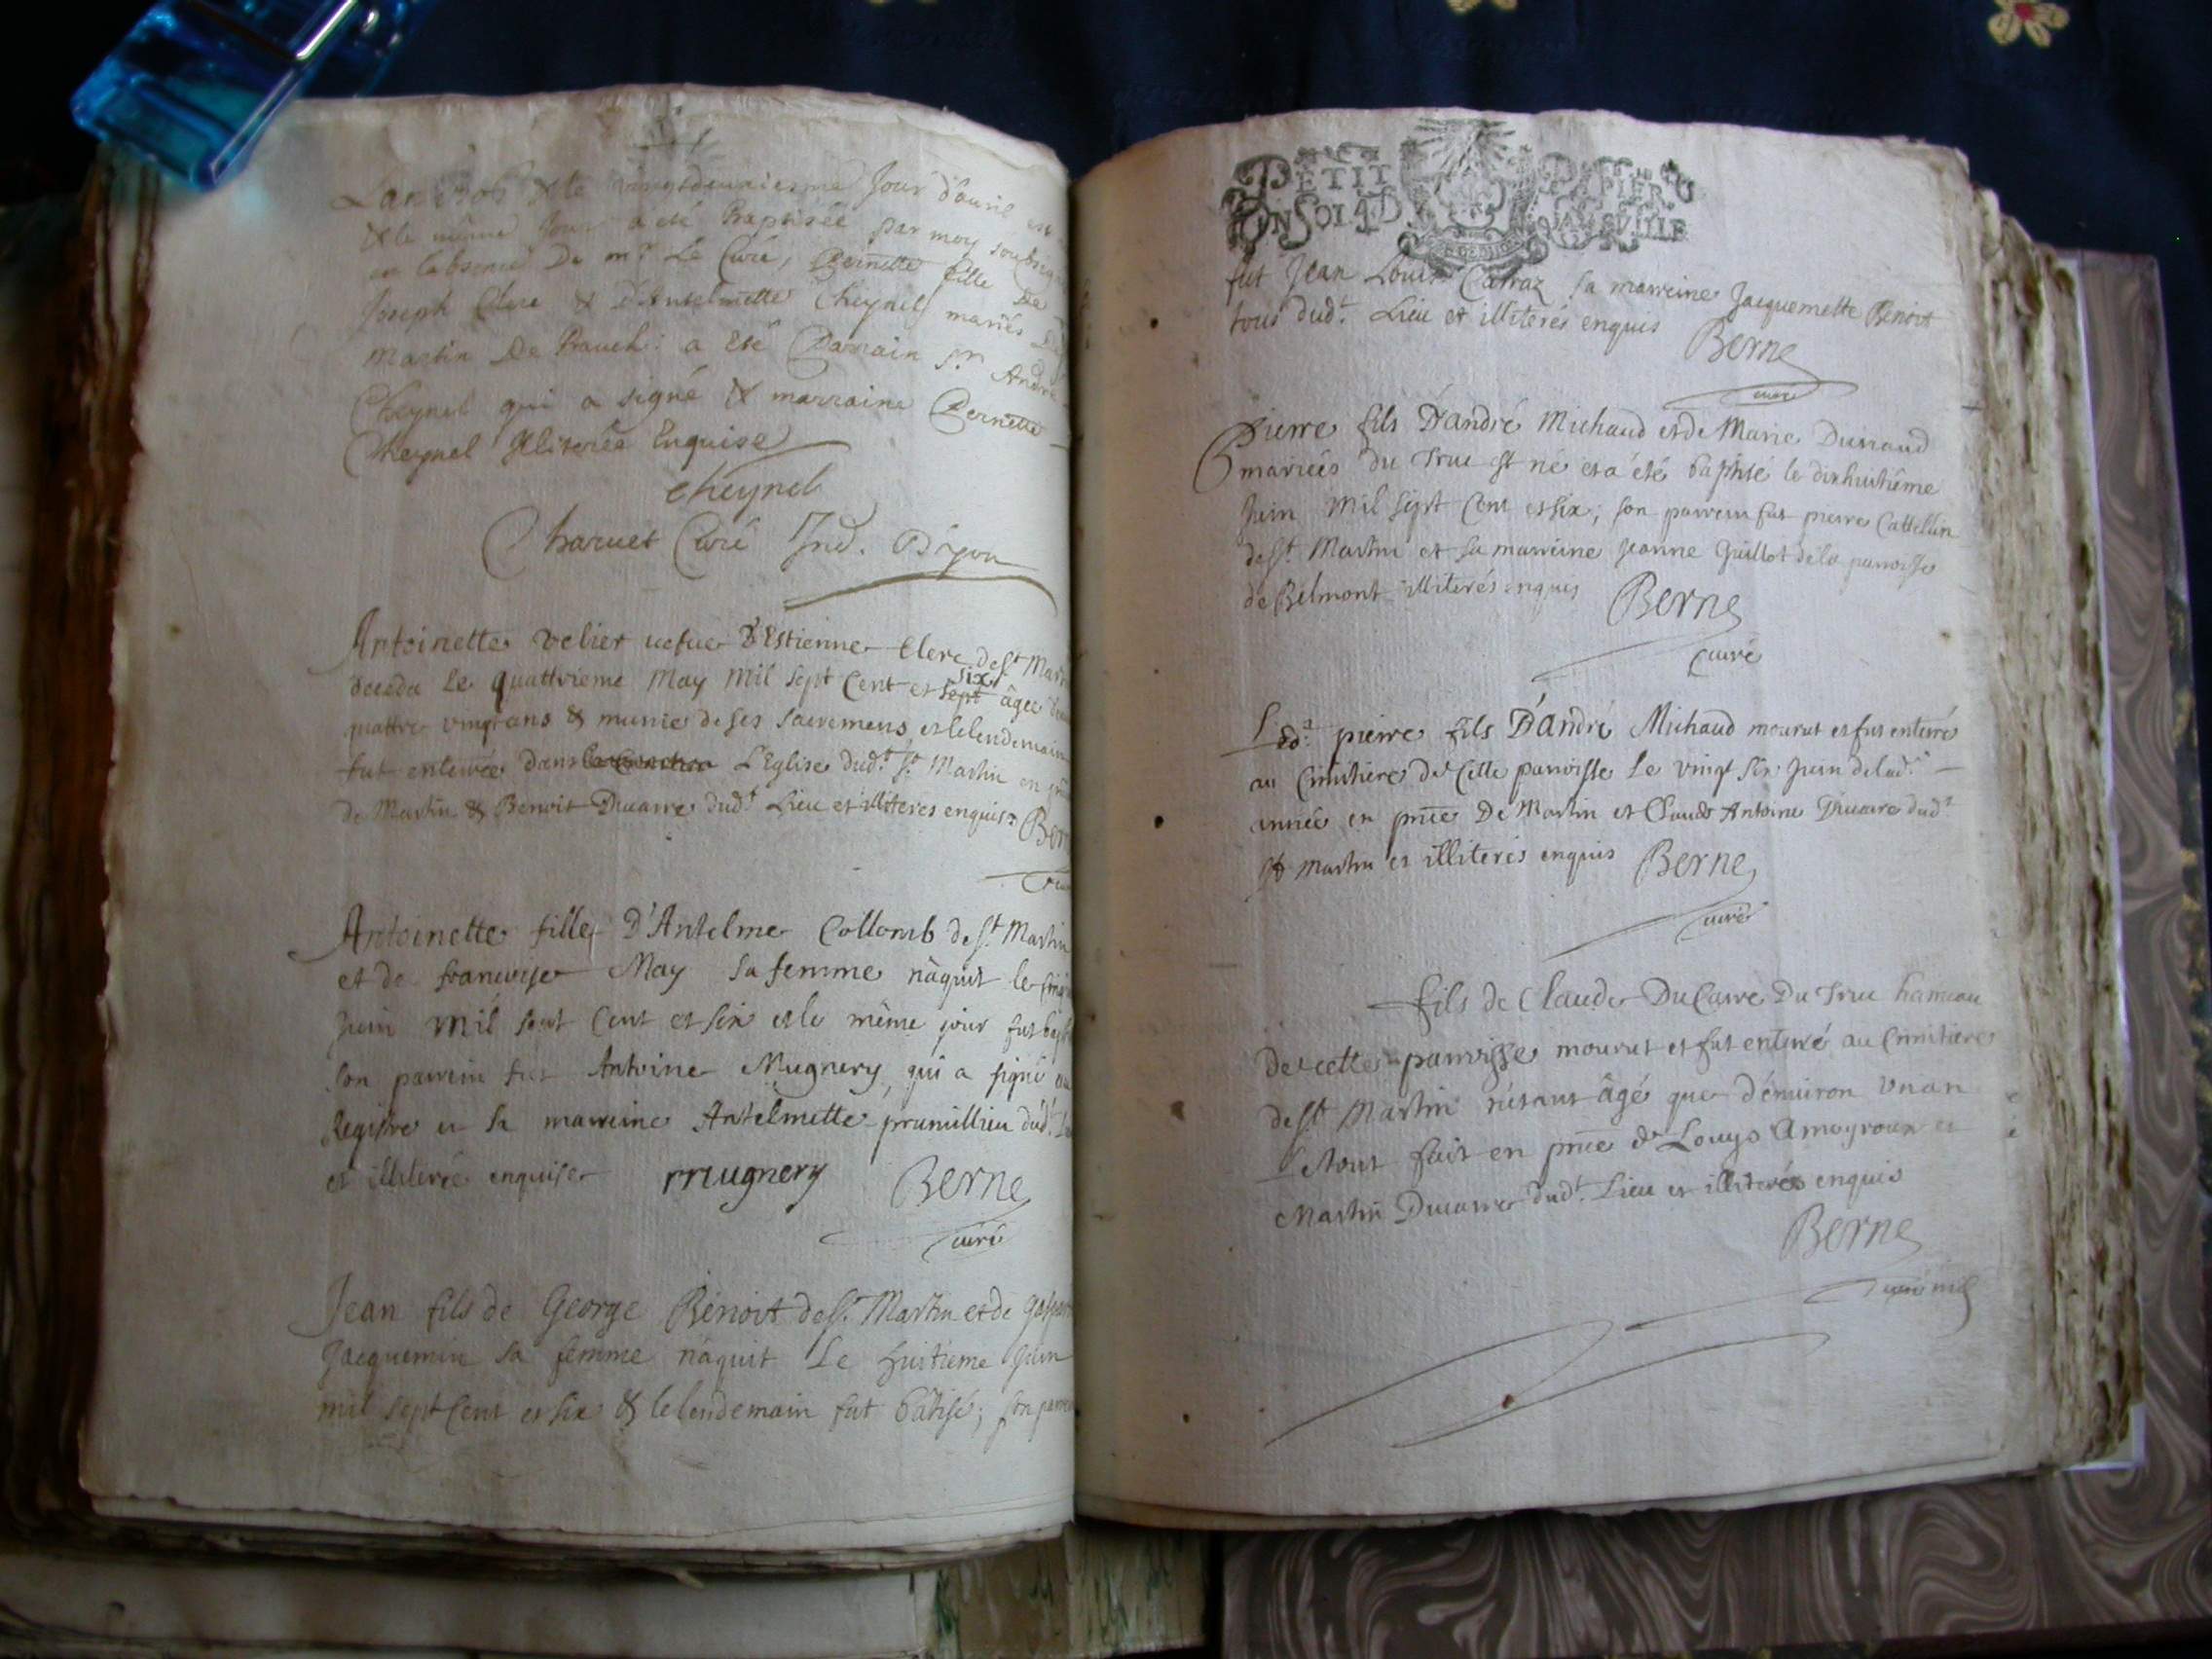 Lan 1706 & le vingtdeuxiesme Jour d'auril est
& le même Jour a eté Baptisée par moy soubsig
en l'absence De mr. Le Curé, Pernette fille De
Joseph Clerc & D'Anselmette Cheynel mariés De
Martin De : a Eté Parrain Sr. André
Cheynel qui a signé & marraine Pernette
Cheynel Illiterée Enquise
Cheynel
Charuet Curé
Antoinette velier uefue D'Estienne Clerc de St Mart
deceda Le quattrieme May Mil sept Cent et sept six âgée d'en
quattre vingt ans & munie de ses sacremens, et le lendemain
fut enterrée dans L'Eglise dudt. St. Martin en
de Martin & Benoit Ducarre dudt Lieu et illiterés enquis. Bern
Antoinette fille D'Antelme Collomb de St. Martin
et de francoise May sa femme nâquit le
Juin Mil sept Cent et six et le même jour fut bap
son parrein fut Antoine Mugnery, qui a signé au
Registre et sa marreine Antelmette prumillieu dudt.
et illiterée enquise mugnery Berne
curé
Jean fils de George Bénoit de St. Martin et de Gaspar
Jacquemin sa femme nâquit Le huitieme Juin
mil sept Cent et six & le lendemain fut bâtisé; son parre
PETIT PAPIER
UN SOL 4 D.
fut Jean Louis Catraz sa marreine Jacquemette Benoit
tous dudt. Lieu et illiterés enquis Berne
curé
Pierre fils D'andré Michaud et de Marie Dunaud
mariés du Truc est né et a été baptisé le dixhuitiême
Juin Mil sept Cent et six; son parrein fut pierre Cattellin
de St. Martin et sa marreine Jeanne Guillot de la parroisse
de Bélmont illiterés enquis Berne
Curé
Ledt. pierre fils D'André Michaud mourut et fut enterré
au Cimitiere de Cette parroisse Le vingt six Juin de lad.
année en pnce De Martin et Claude Antoine Ducarre dudt.
St Martin et illiterés enquis Berne
curé
fils de Claude DuCarre Du Truc hameau
De cette parroisse mourut et fut enterré au Cimitiere
de St Martin n'étant âgé que d'énuiron vn an
Le tout fait en pnce de Louys Ameyroux et
Martin Ducarre dudt. Lieu et illiterés enquis
Berne
curé